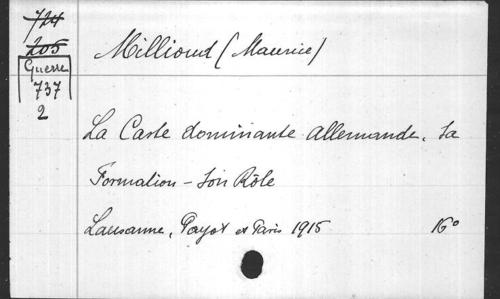 724
205
Guerre
737
2
Millioud (Maurice)
La Caste dominante allemande. Sa
Formation - Son Rôle
Lausanne, Payot et Paris 1915 16°